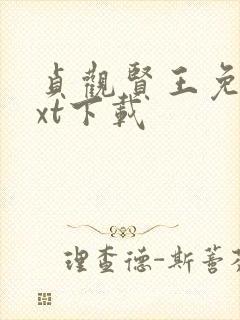 貞觀賢王免
xt下載
理查德-斯蒈